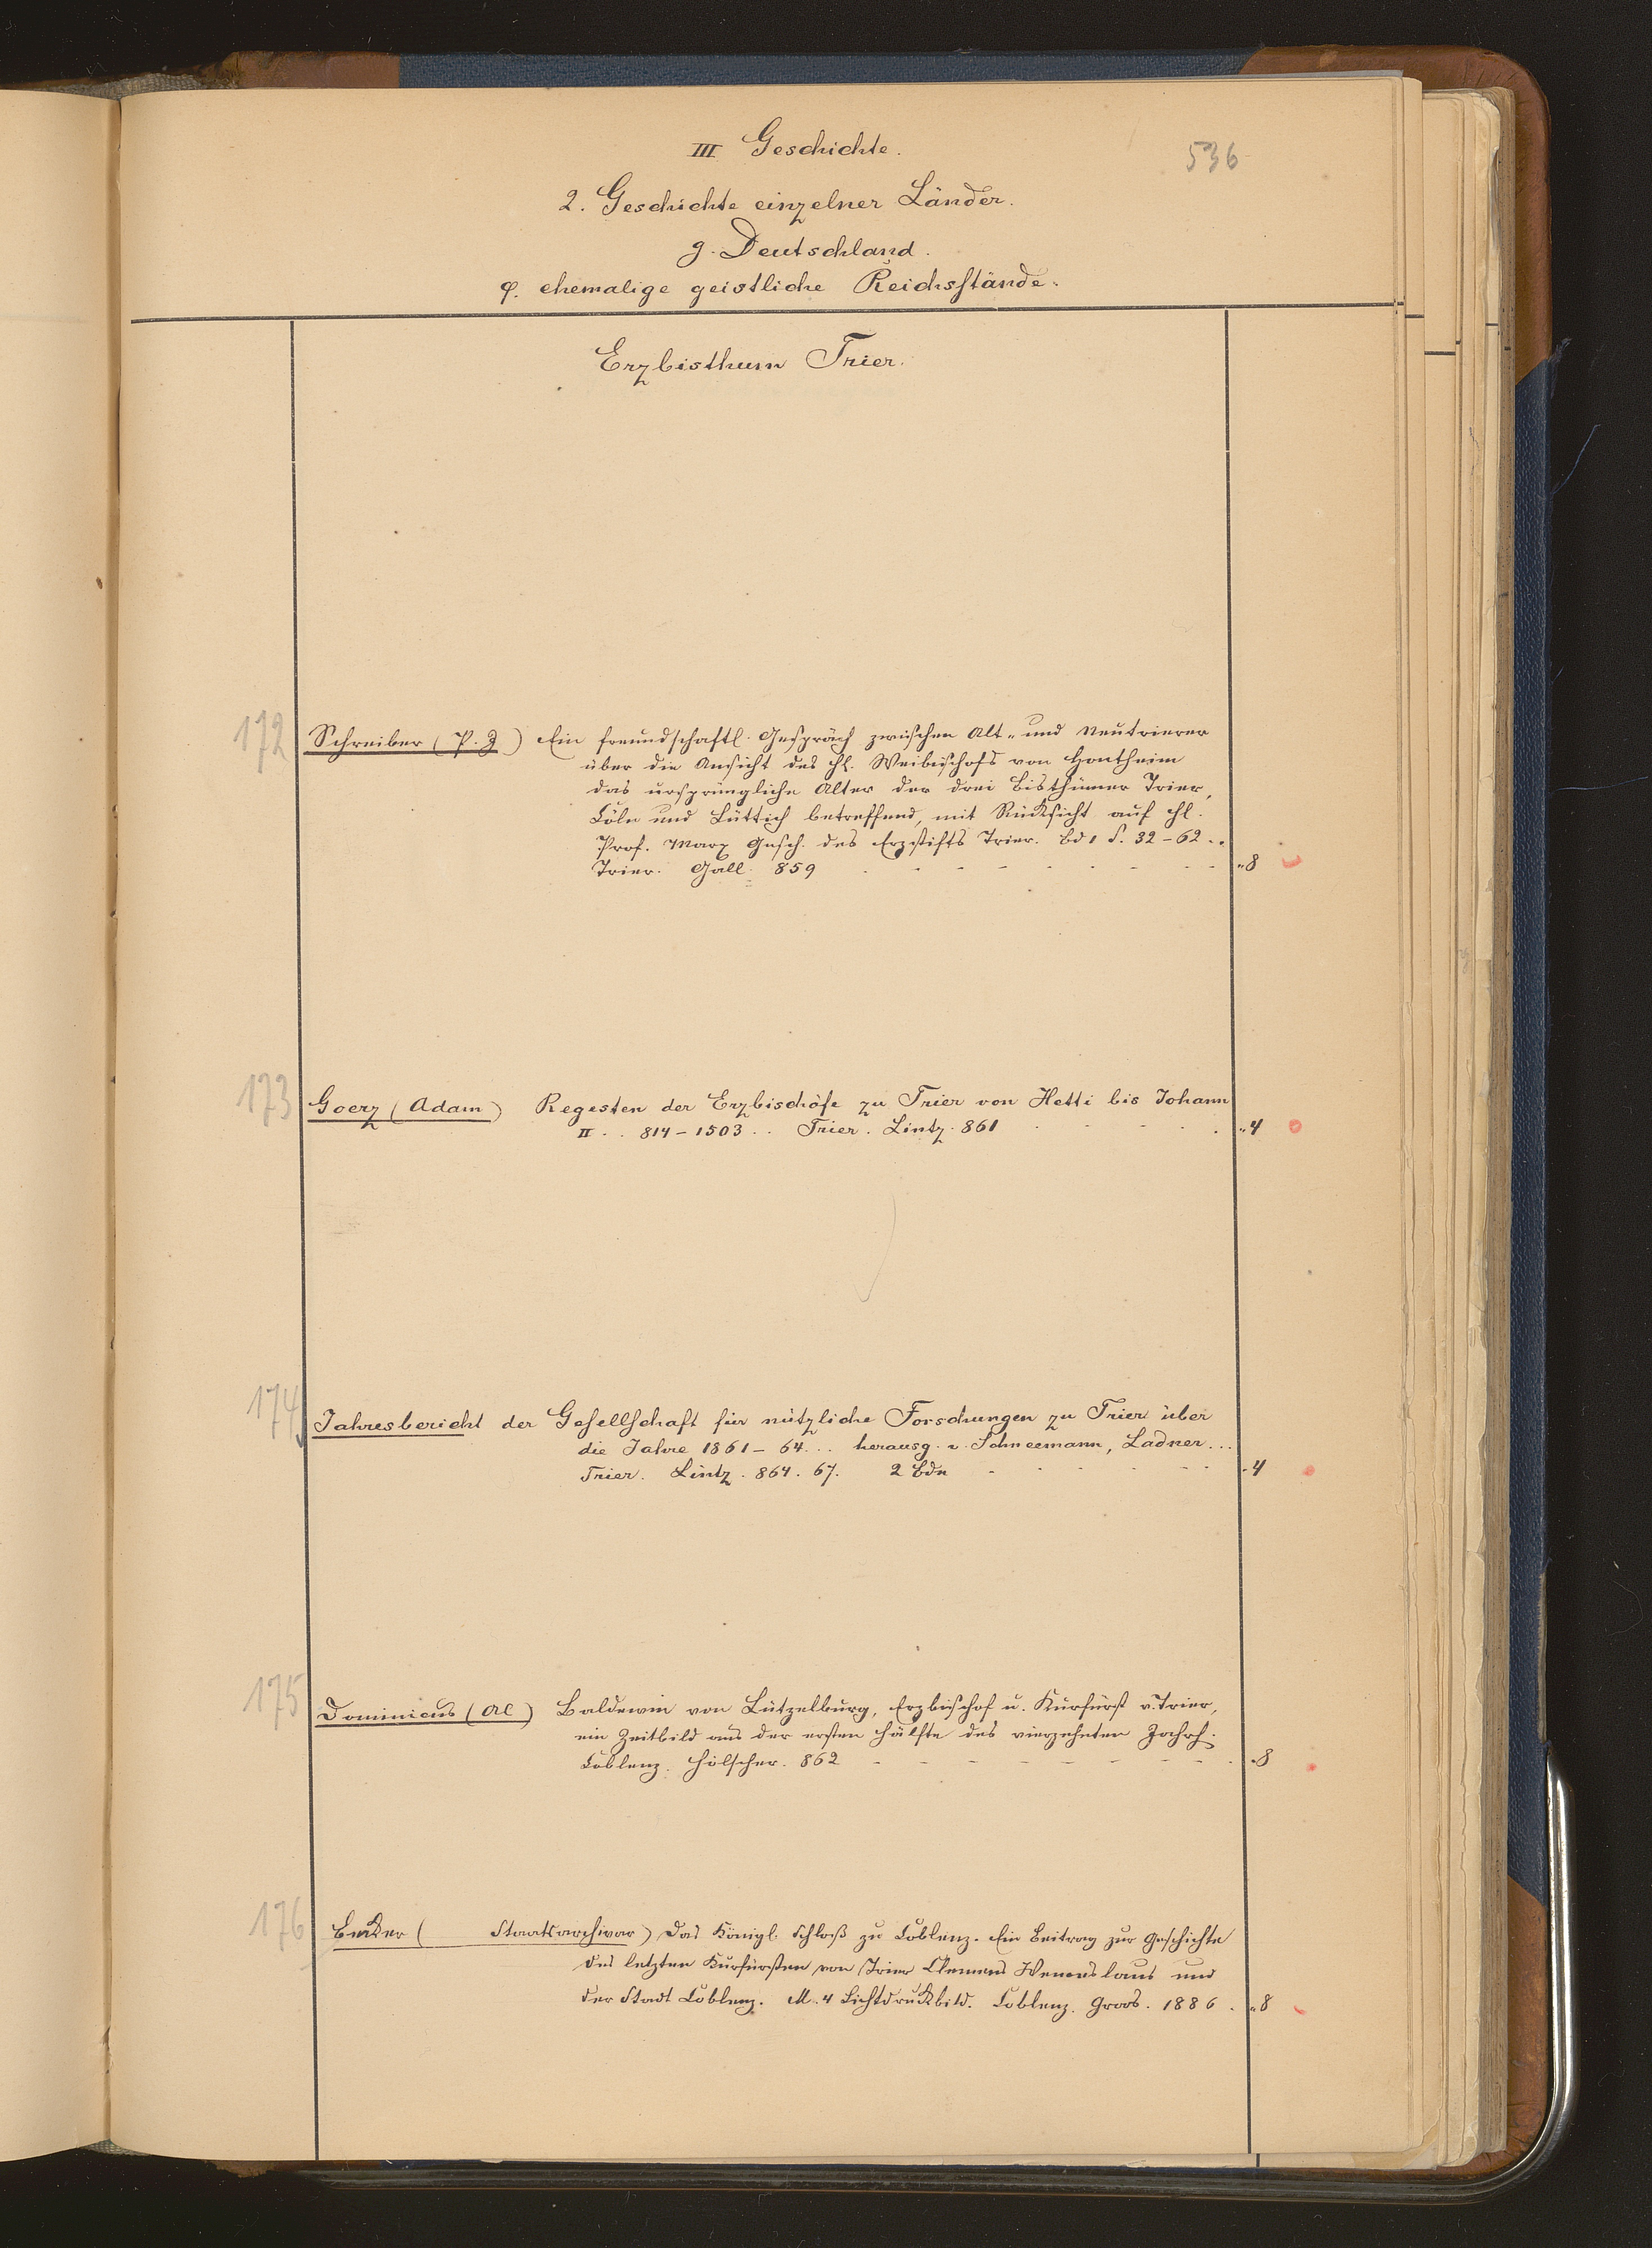 III Geschichte.
536
2. Geschichte einzelner Länder.
g. Deutschland.
φ. ehemalige geistliche Reichsstände.
Erzbisthum Trier.
172 Schreiber (P. J) Ein freundschaftl. Gespräch zwischen Alt- und Neutrierer
über die Ansicht des H. Weibischofs von Hontheim
das ursprüngliche Alter der drei Bisthümer Trier,
Cöln und Lüttich betreffend, mit Rücksicht auf H.
Prof. Marx Gesch. des Erzstifts Trier. Bd 1 S. 32-62 ..
Trier. Gall. 859 „8
173 Goerz (Adam) Regesten der Erzbischöfe zu Trier von Hetti bis Johann
II .. 814-1503 .. Trier. Lintz. 861 „4
174 Jahresbericht der Gesellschaft für nützliche Forschungen zu Trier über
die Jahre 1861-64 ... herausg. v. Schneemann, Ladner ...
Trier. Lintz. 864. 67. 2 Bde -4
175 Dominicus (Al) Baldewin von Lützelburg, Erzbischof u. Kurfürst v. Trier,
ein Zeitbild aus der ersten Hälfte des vierzehnten Jahrh.
Coblenz. Hölscher. 862 -8
176 Becker ( Staatsarchivar) Das Königl. Schloß zu Coblenz. Ein Beitrag zur Geschichte
des letzten Kurfürsten von Trier Clemens Wenceslaus und
der Stadt Coblenz. M. 4 Lichtdruckbild. Coblenz. Groos. 1886. „8